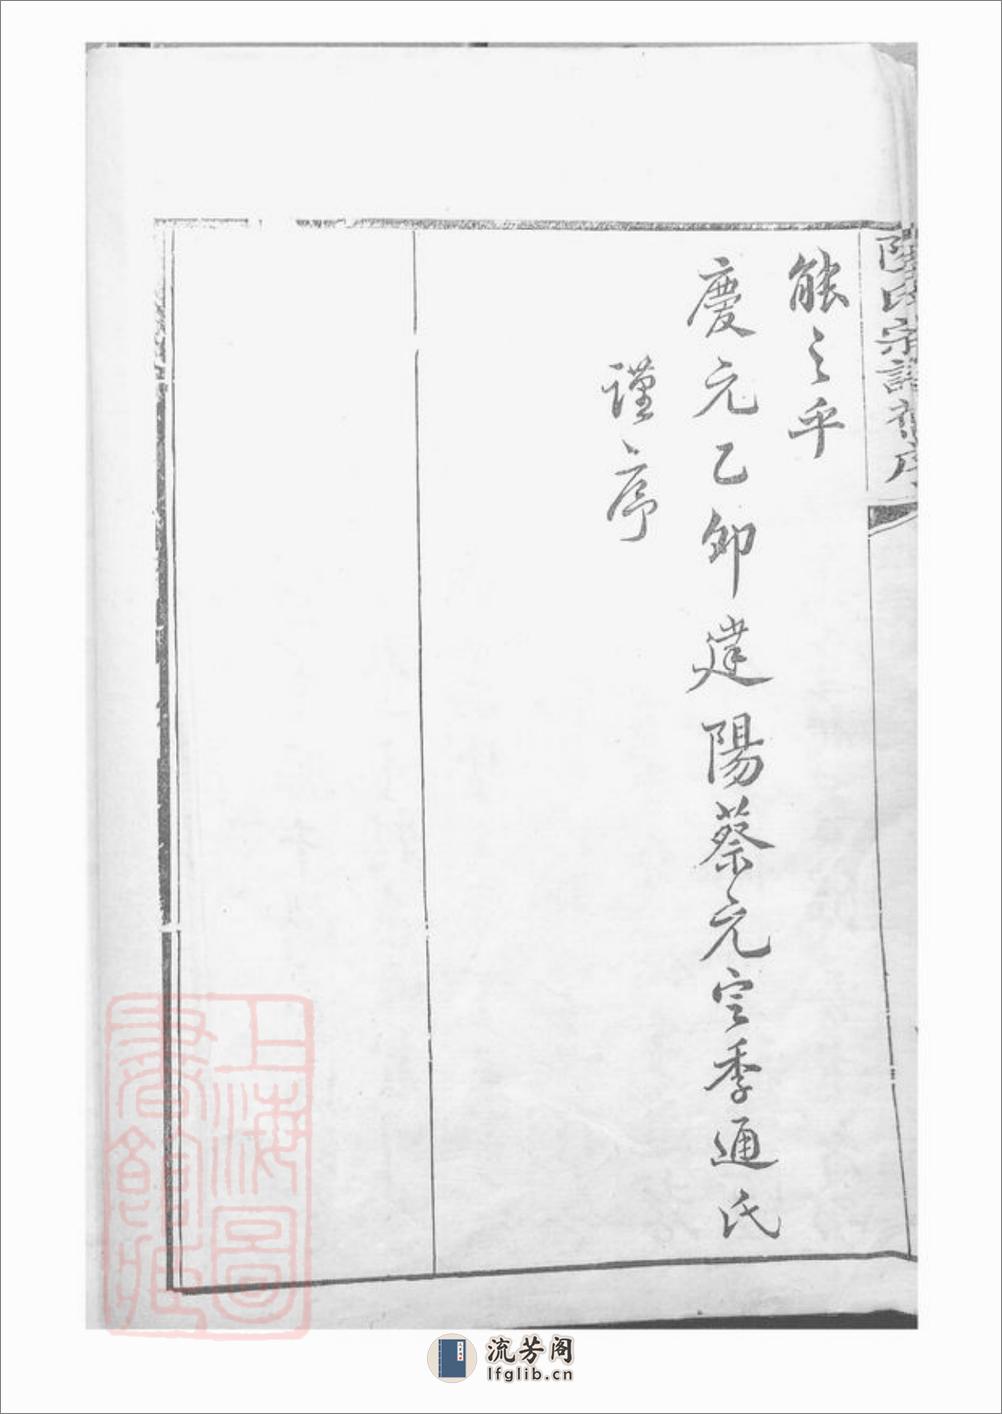 宗譜舊序
能之乎
慶元乙卯建陽蔡元定季通氏
謹序
上海圖
書館藏
流芳阁
lfglib.cn